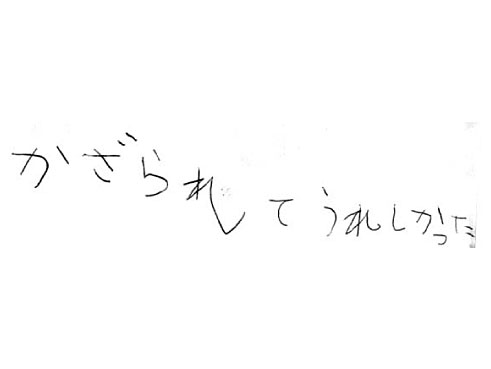 かざられてうれしかった